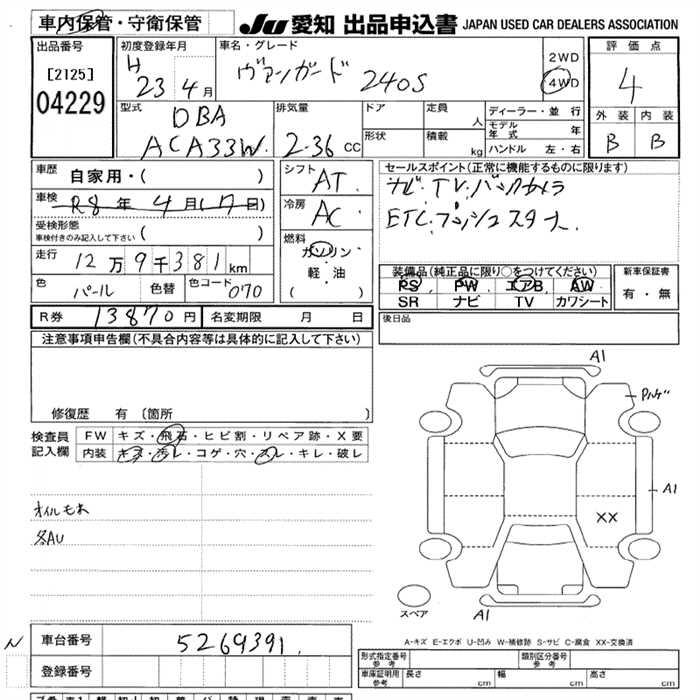 車内保管・守衛保管
JU 愛知 出品申込書 JAPAN USED CAR DEALERS ASSOCIATION
出品番号
[2125]
04229
初度登録年月
H 23 4月
車名・グレード
ヴァンガード 240S
2WD
4WD
評価点
4
外装 内装
B B
型式
DBA
ACA33W
排気量
2.36 CC
ドア
形状
定員 人
積載 kg
ディーラー・並行
モデル年式 年
ハンドル 左・右
車歴 自家用・( )
車検 R8年4月(17日)
受検形態
車検付きのみ記入して下さい ( )
走行 12万9千381km
色 パール 色替 色コード 070
シフト AT
冷房 AC
燃料
ガソリン
軽・油
( )
セールスポイント(正常に機能するものに限ります)
ナビ.TV.バックカメラ
ETC.プッシュスタート
装備品(純正品に限り○をつけてください)
PS PW エアB AW
SR ナビ TV カワシート
新車保証書
有・無
R券 13870円 名変期限 月 日
後日品
注意事項申告欄(不具合内容等は具体的に記入して下さい)
修復歴 有 〔箇所 〕
検査員記入欄
FW キズ・飛石・ヒビ割・リペア跡・X要
内装 キズ・汚レ・コゲ・穴・スレ・キレ・破レ
オイルモレ
各AU
A1
A1
XX
A1
スペア
A-キズ E-エクボ U-凹み W-補修跡 S-サビ C-腐食 XX-交換済
N
車台番号 5269391
登録番号
形式指定番号 参考
類別区分番号 参考
車庫証明用 参考 長さ cm 幅 cm 高さ cm